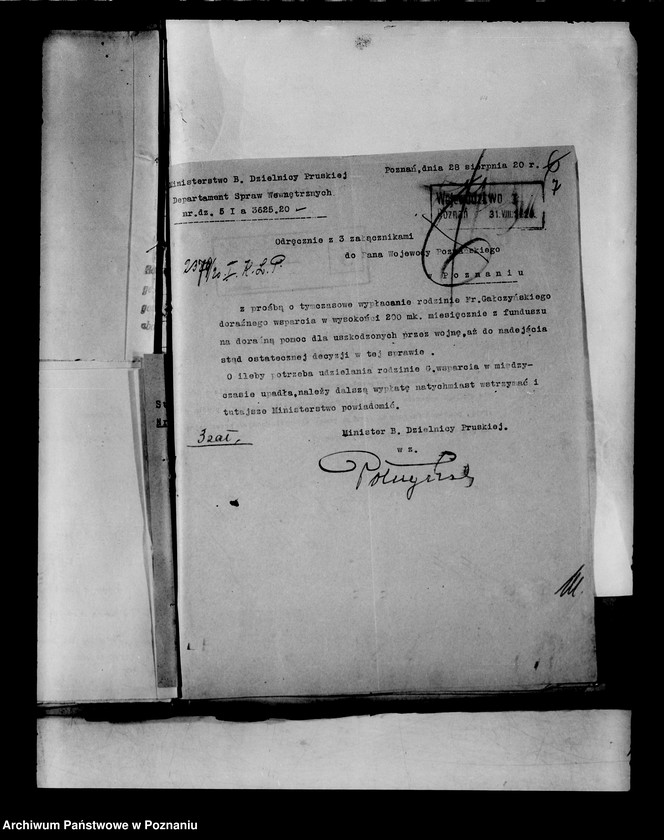 Ministerstwo B. Dzielnicy Pruskiej
Departament Spraw Wewnętrznych
nr.dz. 5 I a 3625.20
Poznań,dnia 28 sierpnia 20 r.
6
7
Województwo
Poznań 31.VIII.1920
Odręcznie z 3 załącznikami
do Pana Wojewody Poznańskiego
w Poznaniu
z prośbą o tymczasowe wypłacanie rodzinie Fr.Gałczyńskiego
doraźnego wsparcia w wysokości 200 mk. miesięcznie z funduszu
na doraźną pomoc dla uszkodzonych przez wojnę,aż do nadejścia
stąd ostatecznej decyzji w tej sprawie .
O ileby potrzeba udzielania rodzinie G.wsparcia w między-
czasie upadła,należy dalszą wypłatę natychmiast wstrzymać i
tutajsze Ministerstwo powiadomić.
3 zał,
Minister B. Dzielnicy Pruskiej.
w z.
Archiwum Państwowe w Poznaniu